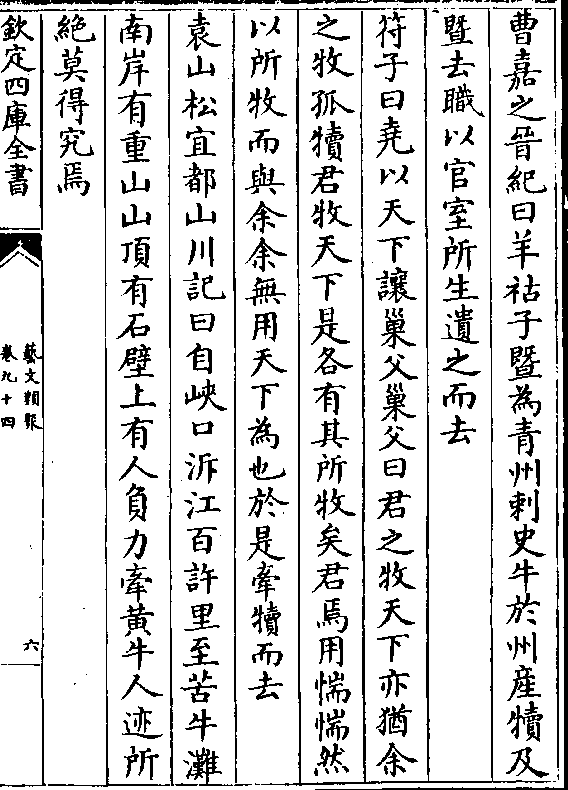 曹嘉之晉紀曰羊祜子暨為青州刺史牛於州産犢及
暨去職以官室所生遺之而去
符子曰堯以天下讓巢父巢父曰君之牧天下亦猶余
之牧孤犢君牧天下是各有其所牧矣君焉用惴惴然
以所牧而與余余無用天下為也於是牽犢而去
袁山松宜都山川記曰自峽口泝江百許里至苦牛灘
南岸有重山山頂有石壁上有人負力牽黄牛人迹所
絶莫得究焉
欽定四庫全書
藝文類聚
卷九十四
六